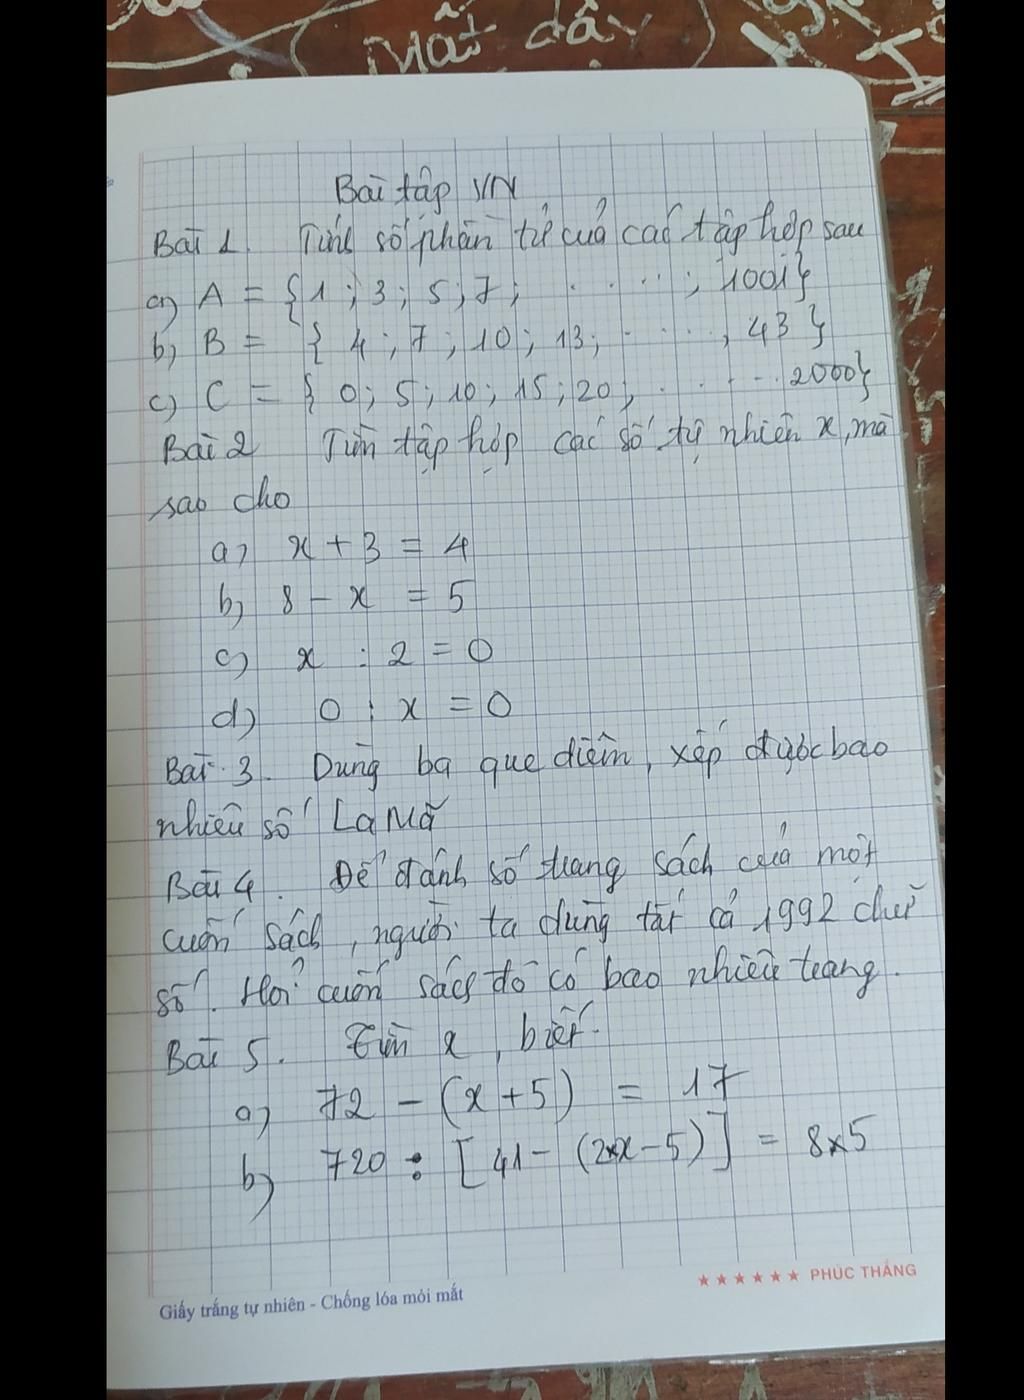 Mất dây
Bài tập VN
Bài 1. Tính số phần tử của các tập hợp sau
a) A = {1; 3; 5; 7; .....; 1001}
b) B = { 4; 7; 10; 13; ....., 43 }
c) C = { 0; 5; 10; 15; 20; ..... 2000}
Bài 2 Tìm tập hợp các số tự nhiên x, mà
sao cho
a) x + 3 = 4
b) 8 - x = 5
c) x : 2 = 0
d) 0 : x = 0
Bài 3. Dùng ba que diêm, xếp được bao
nhiêu số La Mã
Bài 4. Để đánh số trang sách của một
cuốn sách, người ta dùng tất cả 1992 chữ
số. Hỏi cuốn sách đó có bao nhiêu trang.
Bài 5. Tìm x, biết.
a) 72 - (x + 5) = 17
b) 720 : [41 - (2×x - 5)] = 8×5
★★★★★★ PHÚC THẮNG
Giấy trắng tự nhiên - Chống lóa mỏi mắt